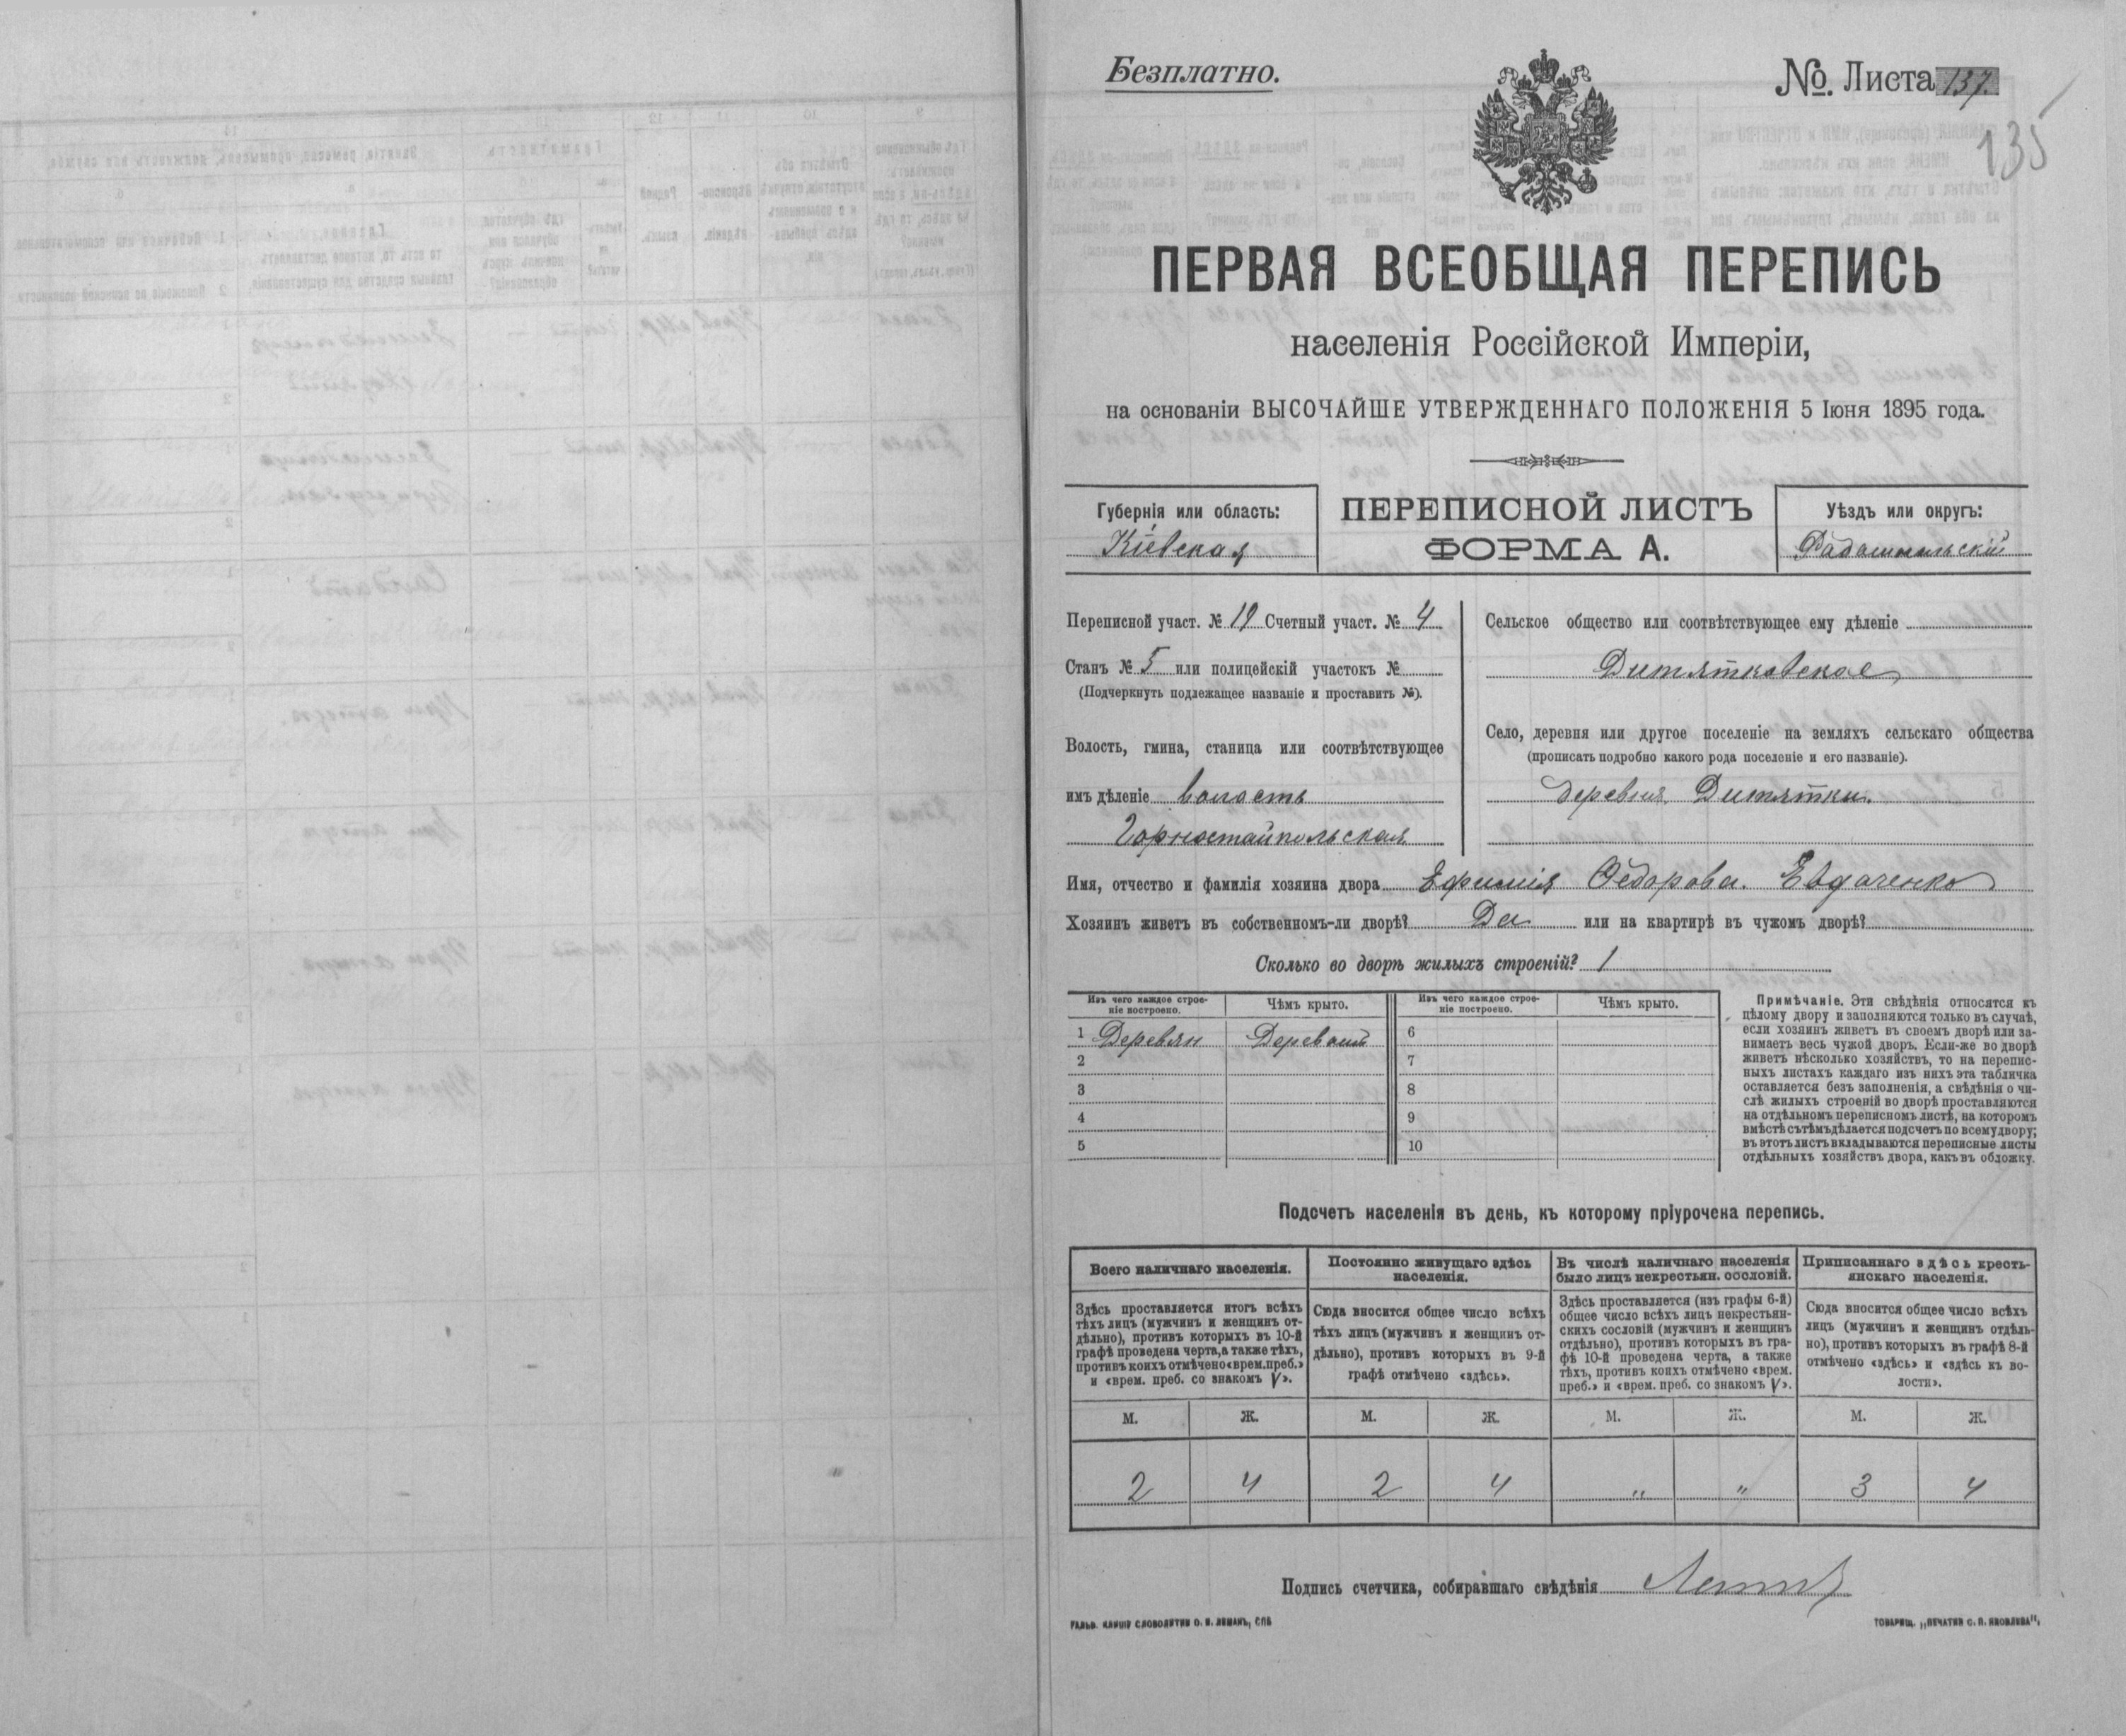 Безплатно.
№. Листа 137.
135
ПЕРВАЯ ВСЕОБЩАЯ ПЕРЕПИСЬ
населенія Россійской Имперіи,
на основаніи ВЫСОЧАЙШЕ УТВЕРЖДЕННАГО ПОЛОЖЕНІЯ 5 Іюня 1895 года.
Губернія или область:
Кіевская
ПЕРЕПИСНОЙ ЛИСТЪ
ФОРМА А.
Уѣздъ или округъ:
Радомысльскій
Переписной участ. № 19 Счетный участ. № 4
Станъ № 5 или полицейскій участокъ №
(Подчеркнуть подлежащее названіе и проставить №).
Волость, гмина, станица или соотвѣтствующее
имъ дѣленіе волость
Горностайпольская
Сельское общество или соотвѣтствующее ему дѣленіе
Дитятковское
Село, деревня или другое поселеніе на земляхъ сельскаго общества
(прописать подробно какого рода поселеніе и его названіе).
деревня Дитятки.
Имя, отчество и фамилія хозяина двора Ефимія Ѳедорова Евдаченко
Хозяинъ живетъ въ собственномъ-ли дворѣ? Да или на квартирѣ въ чужомъ дворѣ?
Сколько во дворѣ жилыхъ строеній? 1
Изъ чего каждое строе-
ніе построено.
Чѣмъ крыто.
Изъ чего каждое строе-
ніе построено.
Чѣмъ крыто.
1 Деревян 6
2 7
3 8
4 9
5 10
Примѣчаніе. Эти свѣдѣнія относятся къ
цѣлому двору и заполняются только въ случаѣ,
если хозяинъ живетъ въ своемъ дворѣ или за-
нимаетъ весь чужой дворъ. Если-же во дворѣ
живетъ нѣсколько хозяйствъ, то на перепис-
ныхъ листахъ каждаго изъ нихъ эта табличка
оставляется безъ заполненія, а свѣдѣнія о чи-
слѣ жилыхъ строеній во дворѣ проставляются
на отдѣльномъ переписномъ листѣ, на которомъ
вмѣстѣ съ тѣмъ дѣлается подсчетъ по всему двору;
въ этотъ листъ вкладываются переписные листы
отдѣльныхъ хозяйствъ двора, какъ въ обложку.
Подсчетъ населенія въ день, къ которому пріурочена перепись.
Всего наличнаго населенія.
Здѣсь проставляется итогъ всѣхъ
тѣхъ лицъ (мужчинъ и женщинъ от-
дѣльно), противъ которыхъ въ 10-й
графѣ проведена черта, а также тѣхъ,
противъ коихъ отмѣчено «врем. преб.»
и «врем. преб. со знакомъ V».
Постоянно живущаго здѣсь
населенія.
Сюда вносится общее число всѣхъ
тѣхъ лицъ (мужчинъ и женщинъ от-
дѣльно), противъ которыхъ въ 9-й
графѣ отмѣчено «здѣсь».
Въ числѣ наличнаго населенія
было лицъ некрестьян. сословій.
Здѣсь проставляется (изъ графы 6-й)
общее число всѣхъ лицъ некрестьян-
скихъ сословій (мужчинъ и женщинъ
отдѣльно), противъ которыхъ въ гра-
фѣ 10-й проведена черта, а также
тѣхъ, противъ коихъ отмѣчено «врем.
преб.» и «врем. преб. со знакомъ V».
Приписаннаго здѣсь кресть-
янскаго населенія.
Сюда вносится общее число всѣхъ
лицъ (мужчинъ и женщинъ отдѣль-
но), противъ которыхъ въ графѣ 8-й
отмѣчено «здѣсь» и «здѣсь къ во-
лости».
М. Ж. М. Ж. М. Ж. М. Ж.
2 4 2 4 „ „ 3 4
Подпись счетчика, собиравшаго свѣдѣнія
ГАЛЬВ. КЛИШЕ СЛОВОЛИТНИ О. И. ЛЕМАНЪ, СПБ
ТОВАРИЩ. „ПЕЧАТНЯ С. П. ЯКОВЛЕВА".